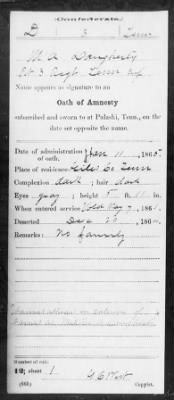 (Confederate.)
D 3 Tenn
M. A. Daugherty
Pvt 3 Regt Tenn
Name appears as signature to an
Oath of Amnesty
subscribed and sworn to at Pulaski, Tenn., on
the date set opposite the name.
Date of administration of oath, Jan 11, 1865
Place of residence Giles Co Tenn
Complexion dark; hair dark
Eyes gray; height 5 ft. 11 in.
When entered service May 7, 1861
Deserted Dec 25, 1864
Remarks: No family
Number of roll:
12; sheet 1
(663) Copyist.